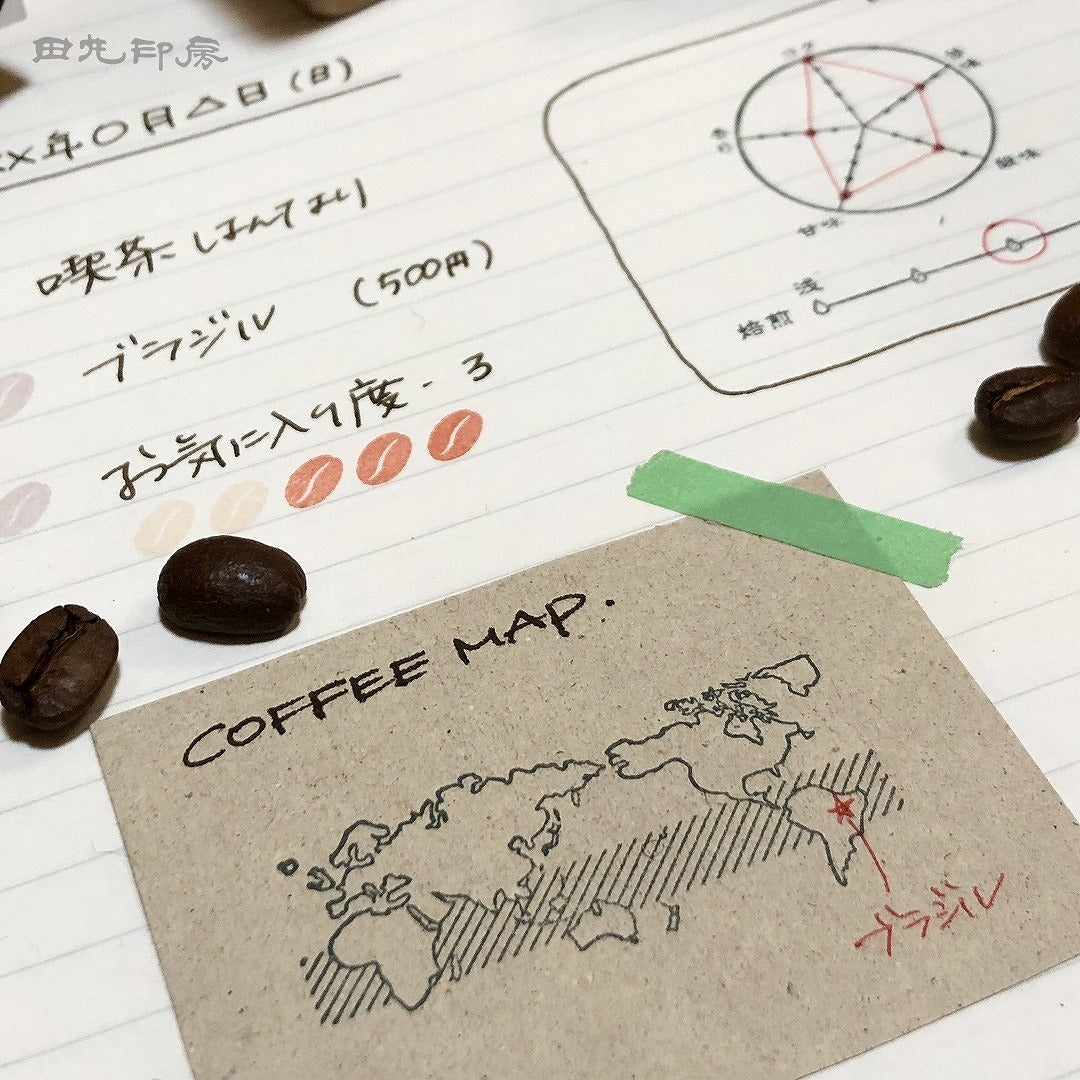 田丸印房
XX年〇月△日(日)
喫茶ほんてまり
ブラジル (500円)
お気に入り度・3
コク
苦味
酸味
甘味
浅
焙煎
COFFEE MAP.
ブラジル